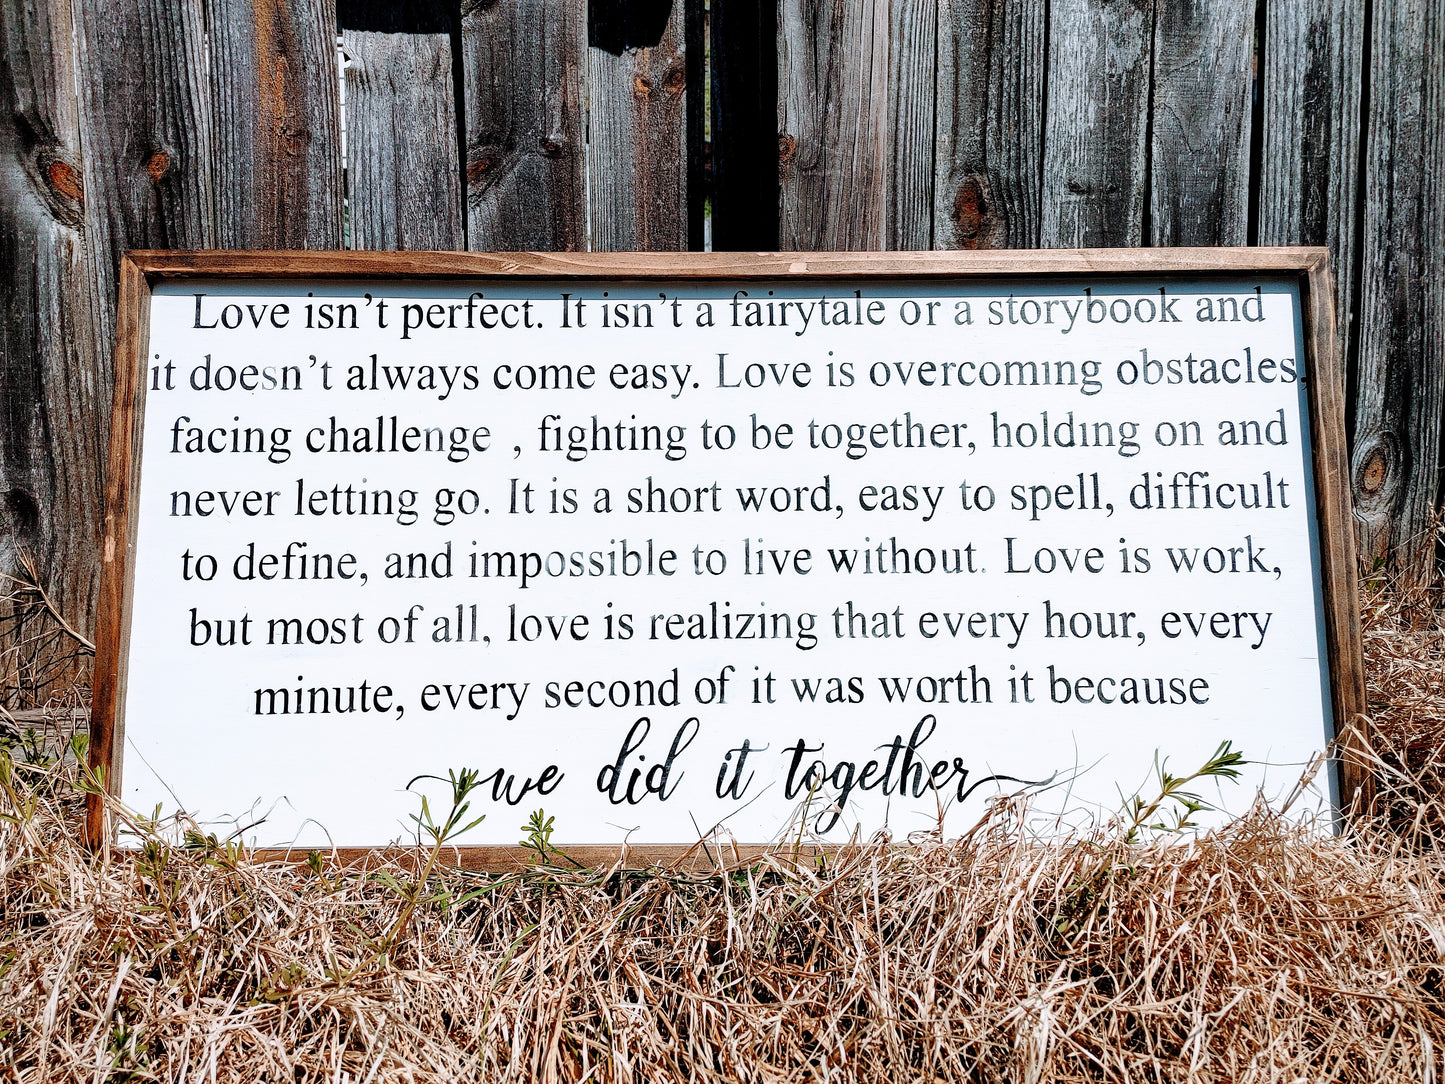 Love isn't perfect. It isn't a fairytale or a storybook and
it doesn't always come easy. Love is overcoming obstacles,
facing challenge , fighting to be together, holding on and
never letting go. It is a short word, easy to spell, difficult
to define, and impossible to live without. Love is work,
but most of all, love is realizing that every hour, every
minute, every second of it was worth it because
we did it together